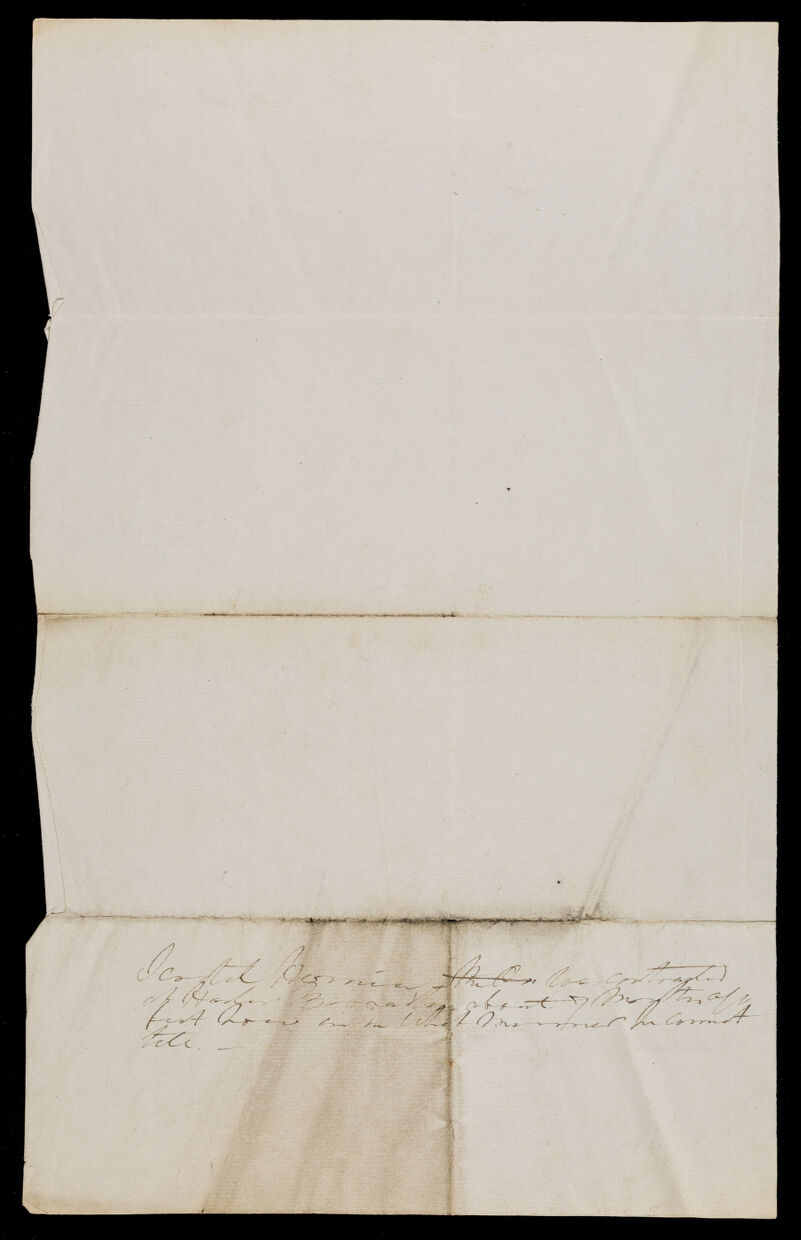 Scrotal Hernia was contracted
at Harpers about 7 Months ago
but how or in what manner he cannot
tell. —